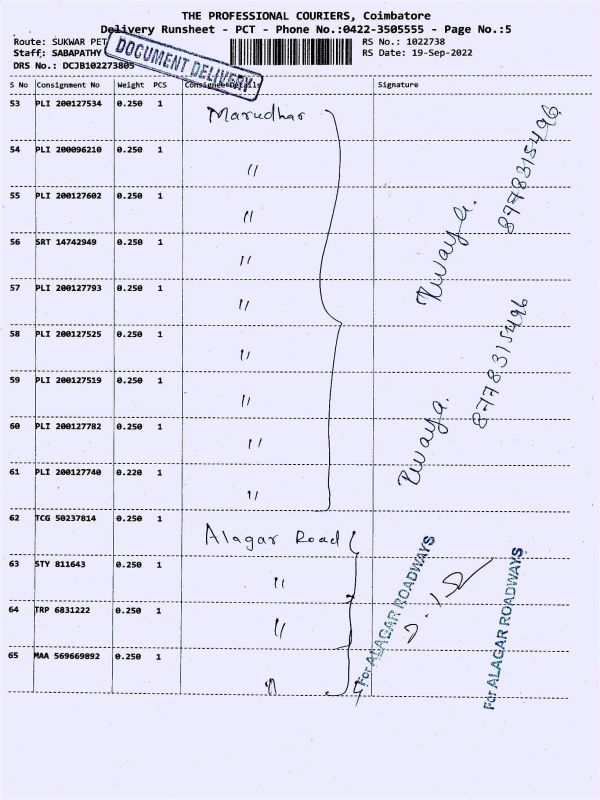 THE PROFESSIONAL COURIERS, Coimbatore
Delivery Runsheet - PCT - Phone No.:0422-3505555 - Page No.:5
Route: SUKWAR PET
RS No.: 1022738
Staff: SABAPATHY
RS Date: 19-Sep-2022
DRS No.: DCJB102273805
DOCUMENT DELIVERY
S No Consignment No Weight PCS Consignee Details Signature
53 PLI 200127534 0.250 1 Marudhar
54 PLI 200096210 0.250 1 "
55 PLI 200127602 0.250 1 "
56 SRT 14742949 0.250 1 "
57 PLI 200127793 0.250 1 "
58 PLI 200127525 0.250 1 "
59 PLI 200127519 0.250 1 "
60 PLI 200127782 0.250 1 "
61 PLI 200127740 0.220 1 "
8778315496
62 TCG 50237814 0.250 1 Alagar Road
63 STY 811643 0.250 1 "
64 TRP 6831222 0.250 1 "
65 MAA 569669892 0.250 1 "
For ALAGAR ROADWAYS
For ALAGAR ROADWAYS